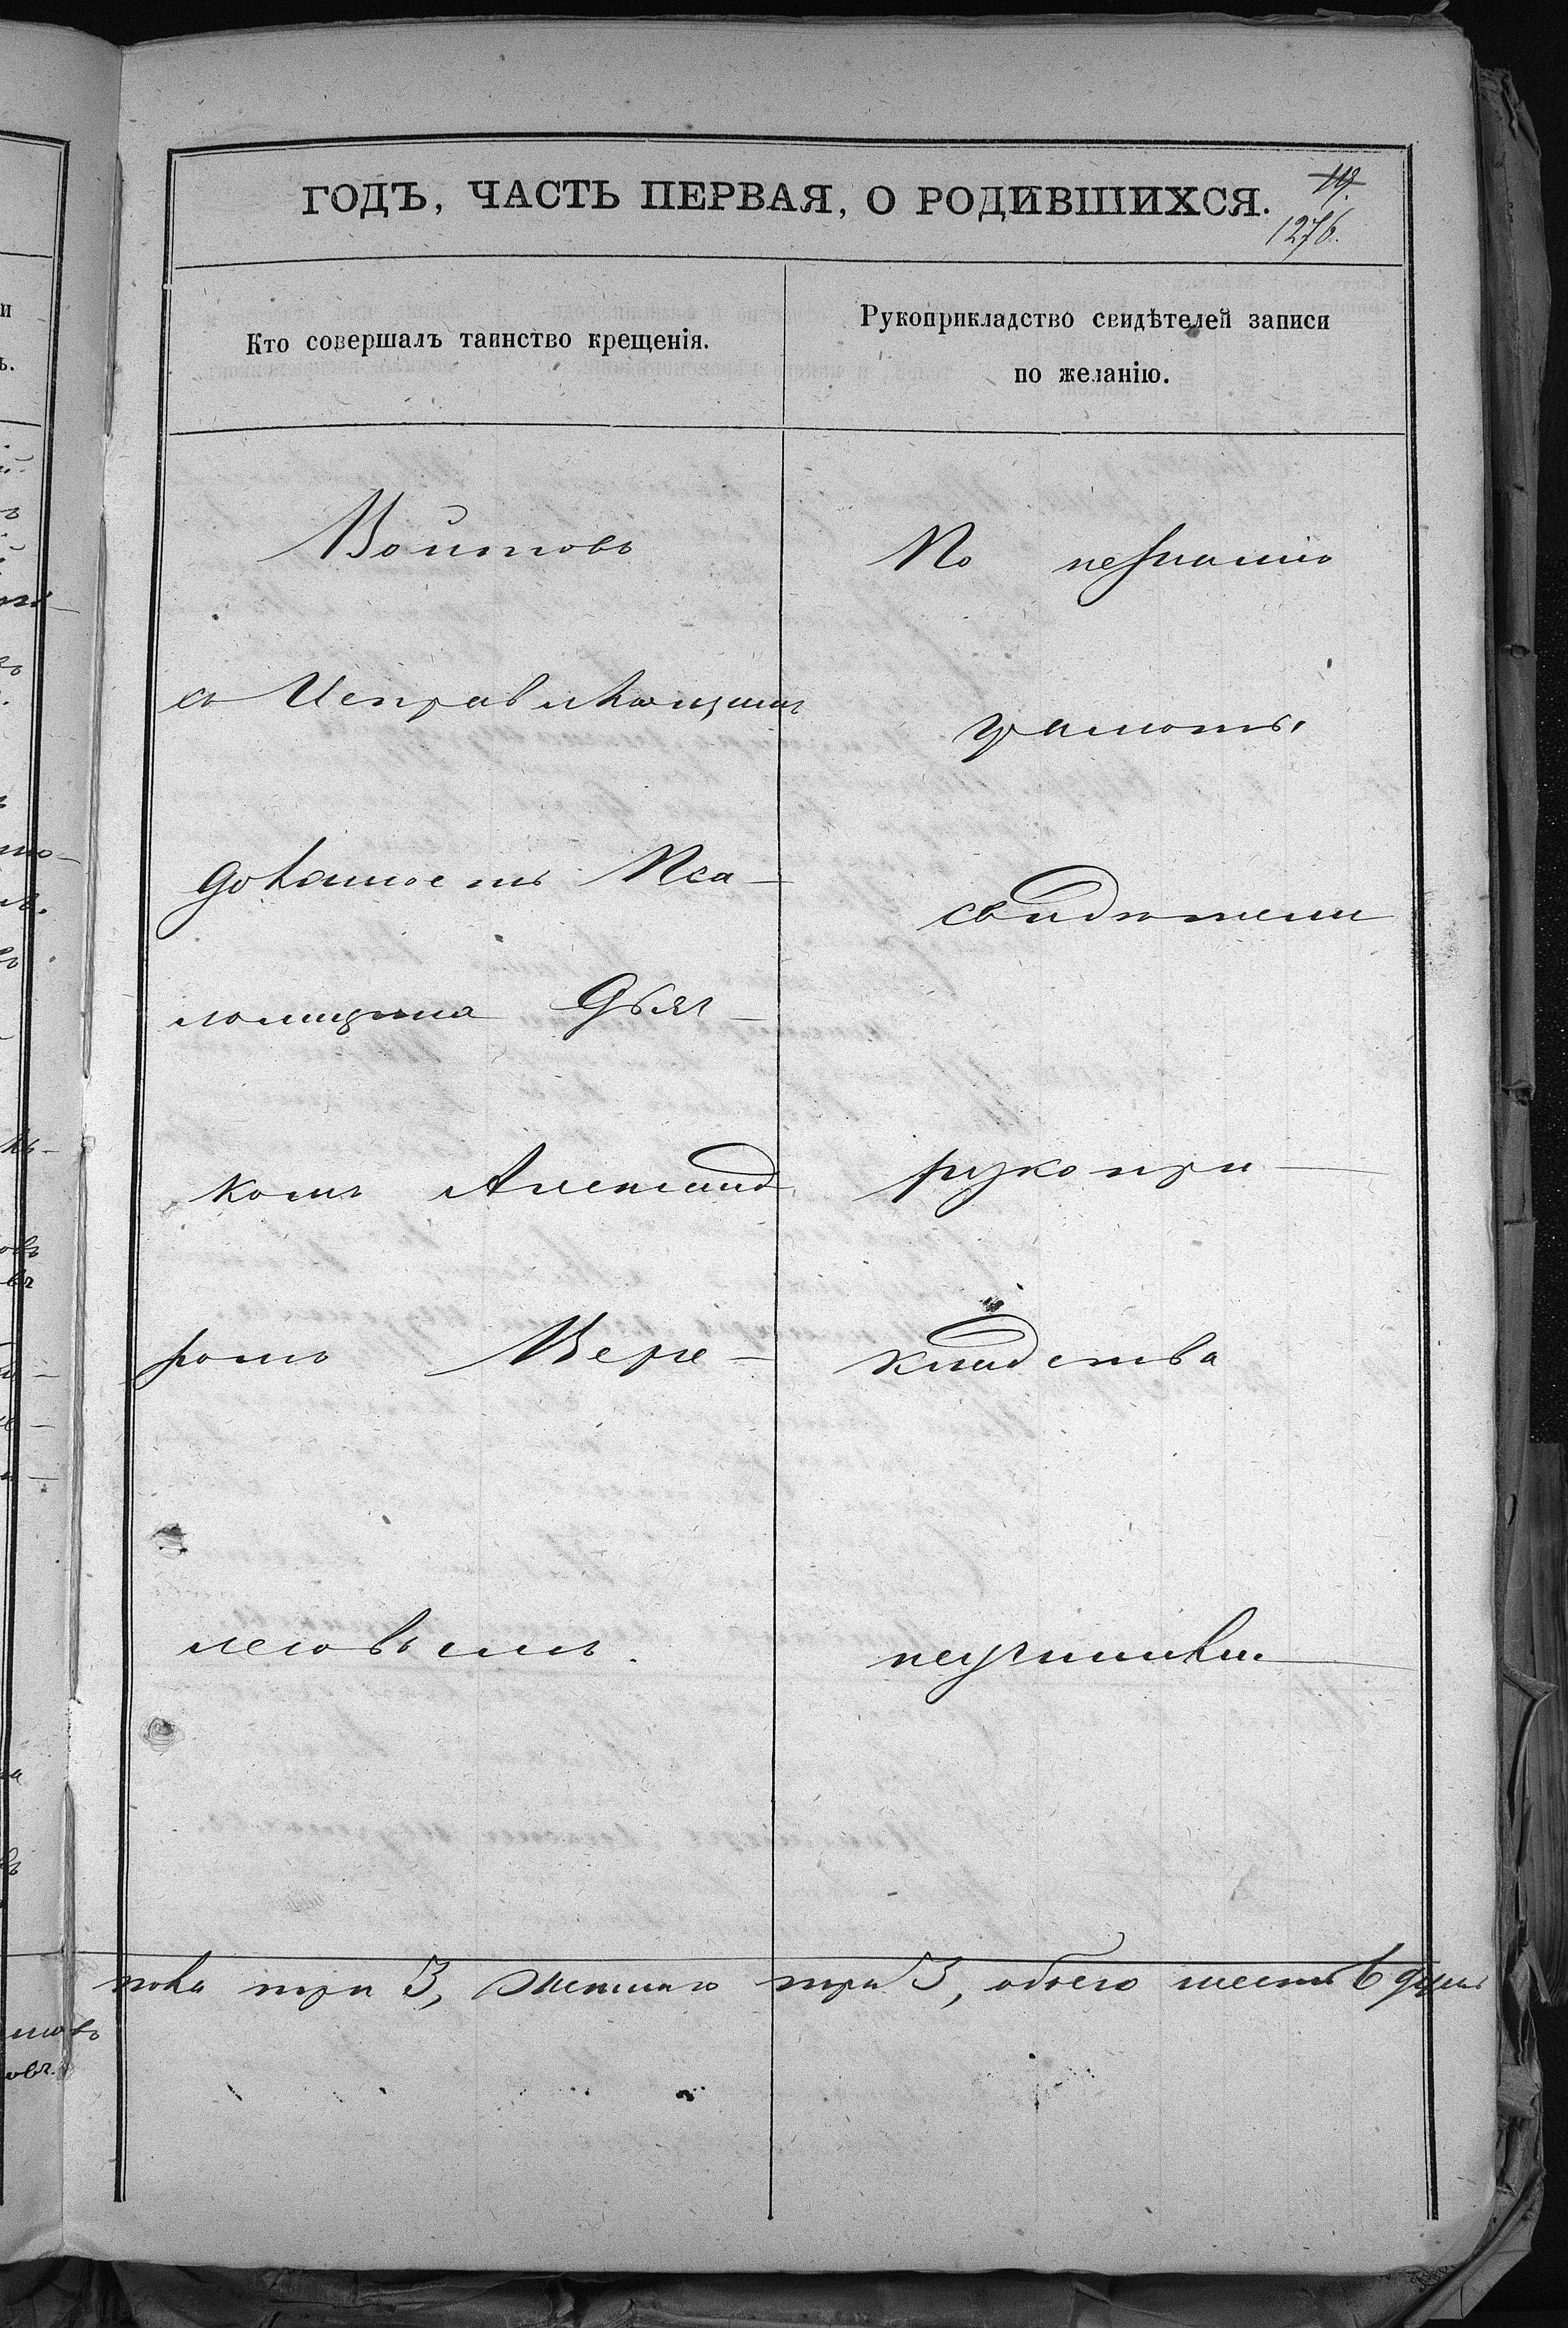 ГОДЪ, ЧАСТЬ ПЕРВАЯ, О РОДИВШИХСЯ.
1276.
Кто совершалъ таинство крещенія.
Рукоприкладство свидѣтелей записи
по желанію.
Войтовъ
съ Исправляющимъ
должность Пса-
ломщика Дьяч-
комъ Александ
ромъ Вере-
леговымъ.
По незнанію
грамоты
свидѣтели
рукопри-
кладства
неучинили.
пола три 3, женскаго три 3, обоего шесть 6 душъ